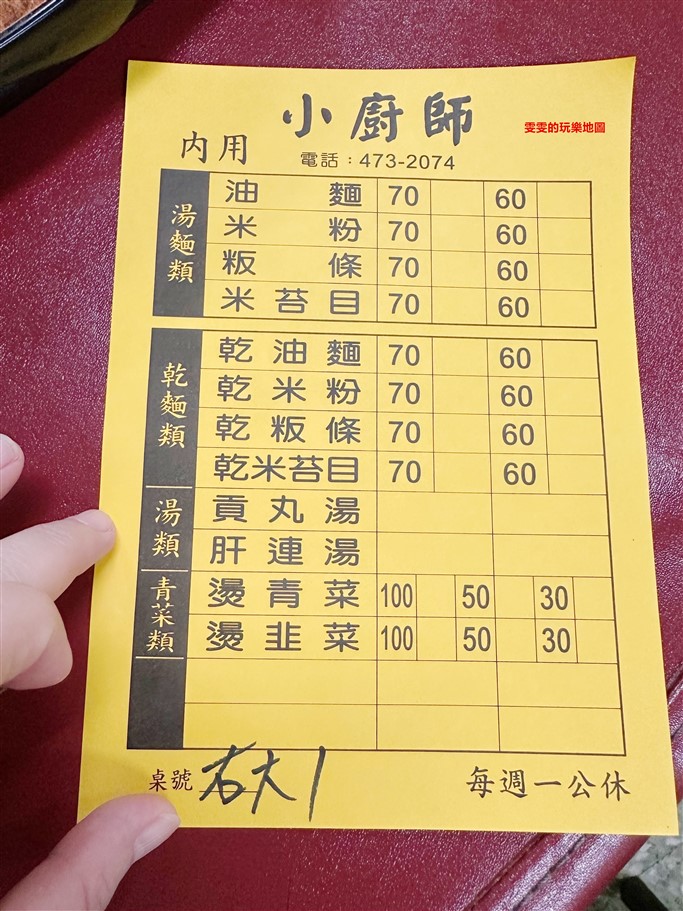 小廚師
雯雯的玩樂地圖
內用
電話：473-2074
湯麵類
油麵 70 60
米粉 70 60
粄條 70 60
米苔目 70 60
乾麵類
乾油麵 70 60
乾米粉 70 60
乾粄條 70 60
乾米苔目 70 60
湯類
貢丸湯
肝連湯
青菜類
燙青菜 100 50 30
燙韭菜 100 50 30
桌號 右大1
每週一公休